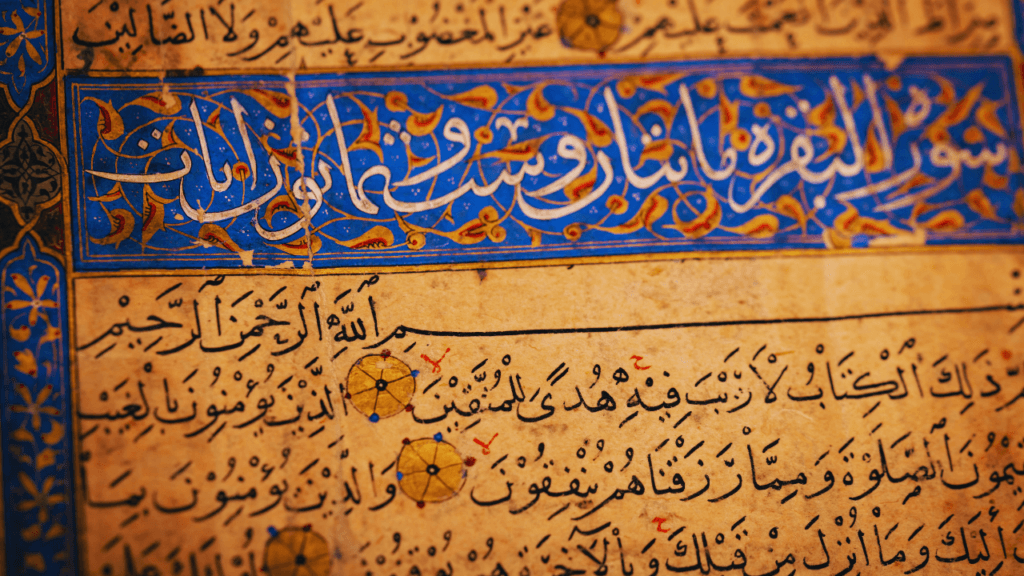 صِرَاطَ الَّذِيْنَ اَنْعَمْتَ عَلَيْهِمْ غَيْرِ الْمَغْضُوْبِ عَلَيْهِمْ وَلَا الضَّالِّيْنَ
سورة البقره مايتان وست وثمانون ايات
بِسْمِ اللّٰهِ الرَّحْمٰنِ الرَّحِيْمِ
ذٰلِكَ الْكِتَابُ لَاْ رَيْبَ فِيْهِ هُدًى لِلْمُتَّقِيْنَ الَّذِيْنَ يُؤْمِنُوْنَ بِالْغَيْبِ
الصَّلٰوةَ وَمِمَّاْ رَزَقْنَاهُمْ يُنْفِقُوْنَ وَالَّذِيْنَ يُؤْمِنُوْنَ بِمَا
اِلَيْكَ وَمَاْ اُنْزِلَ مِنْ قَبْلِكَ وَبِالْاٰخِرَةِ هُمْ يُوْقِنُوْنَ